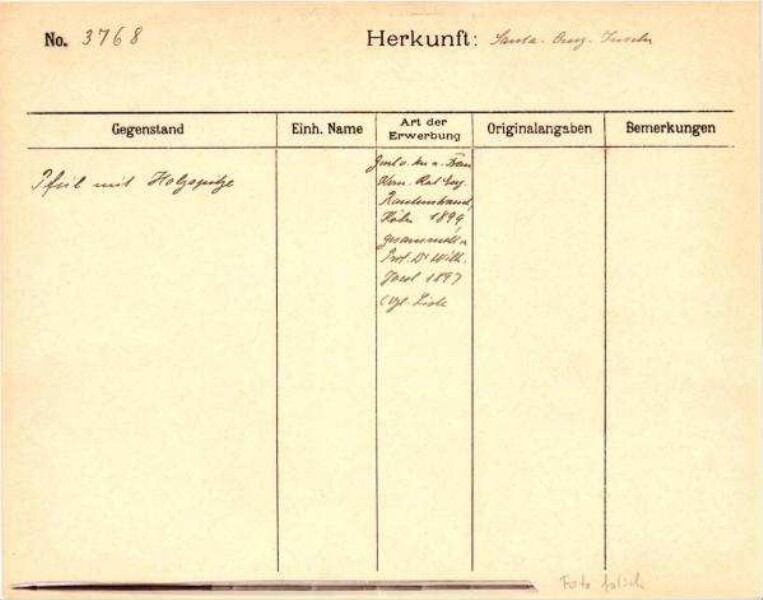 No. 3768
Herkunft: Santa-Cruz-Inseln
Gegenstand
Einh. Name
Art der Erwerbung
Originalangaben
Bemerkungen
Pfeil mit Holzspitze
Kom. Rat Eug.
Rautenstrauch,
Köln 1899,
gesammelt v.
Prof. Dr Wilh.
Joest 1897
(vgl. Liste
Foto falsch